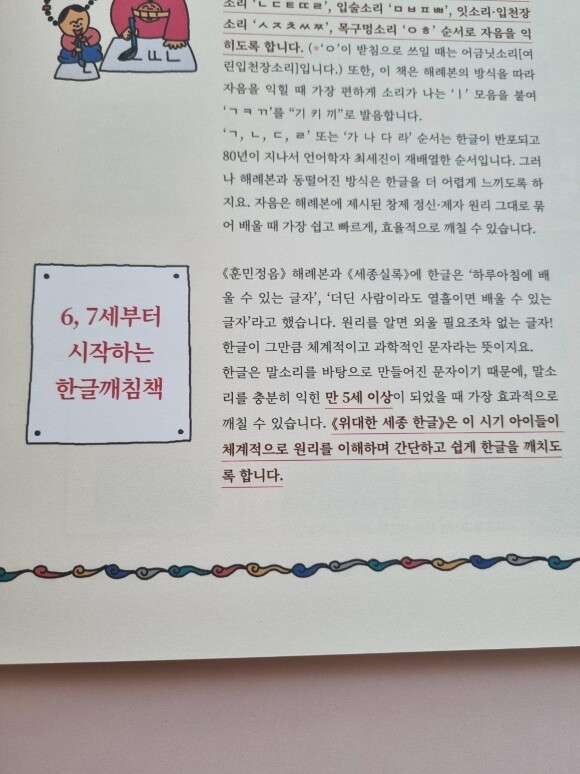 소리 'ㄴㄷㅌㄸㄹ', 입술소리 'ㅁㅂㅍㅃ', 잇소리·입천장
소리 'ㅅㅈㅊㅆㅉ', 목구멍소리 'ㅇㅎ' 순서로 자음을 익
히도록 합니다. (*'ㅇ'이 받침으로 쓰일 때는 어금닛소리[여
린입천장소리]입니다.) 또한, 이 책은 해례본의 방식을 따라
자음을 익힐 때 가장 편하게 소리가 나는 'ㅣ' 모음을 붙여
'ㄱㅋㄲ'를 "기 키 끼"로 발음합니다.
'ㄱ, ㄴ, ㄷ, ㄹ' 또는 '가 나 다 라' 순서는 한글이 반포되고
80년이 지나서 언어학자 최세진이 재배열한 순서입니다. 그러
나 해례본과 동떨어진 방식은 한글을 더 어렵게 느끼도록 하
지요. 자음은 해례본에 제시된 창제 정신·제자 원리 그대로 묶
어 배울 때 가장 쉽고 빠르게, 효율적으로 깨칠 수 있습니다.
6, 7세부터
시작하는
한글깨침책
《훈민정음》 해례본과 《세종실록》에 한글은 '하루아침에 배
울 수 있는 글자', '더딘 사람이라도 열흘이면 배울 수 있는
글자'라고 했습니다. 원리를 알면 외울 필요조차 없는 글자!
한글이 그만큼 체계적이고 과학적인 문자라는 뜻이지요.
한글은 말소리를 바탕으로 만들어진 문자이기 때문에, 말소
리를 충분히 익힌 만 5세 이상이 되었을 때 가장 효과적으로
깨칠 수 있습니다. 《위대한 세종 한글》은 이 시기 아이들이
체계적으로 원리를 이해하며 간단하고 쉽게 한글을 깨치도
록 합니다.